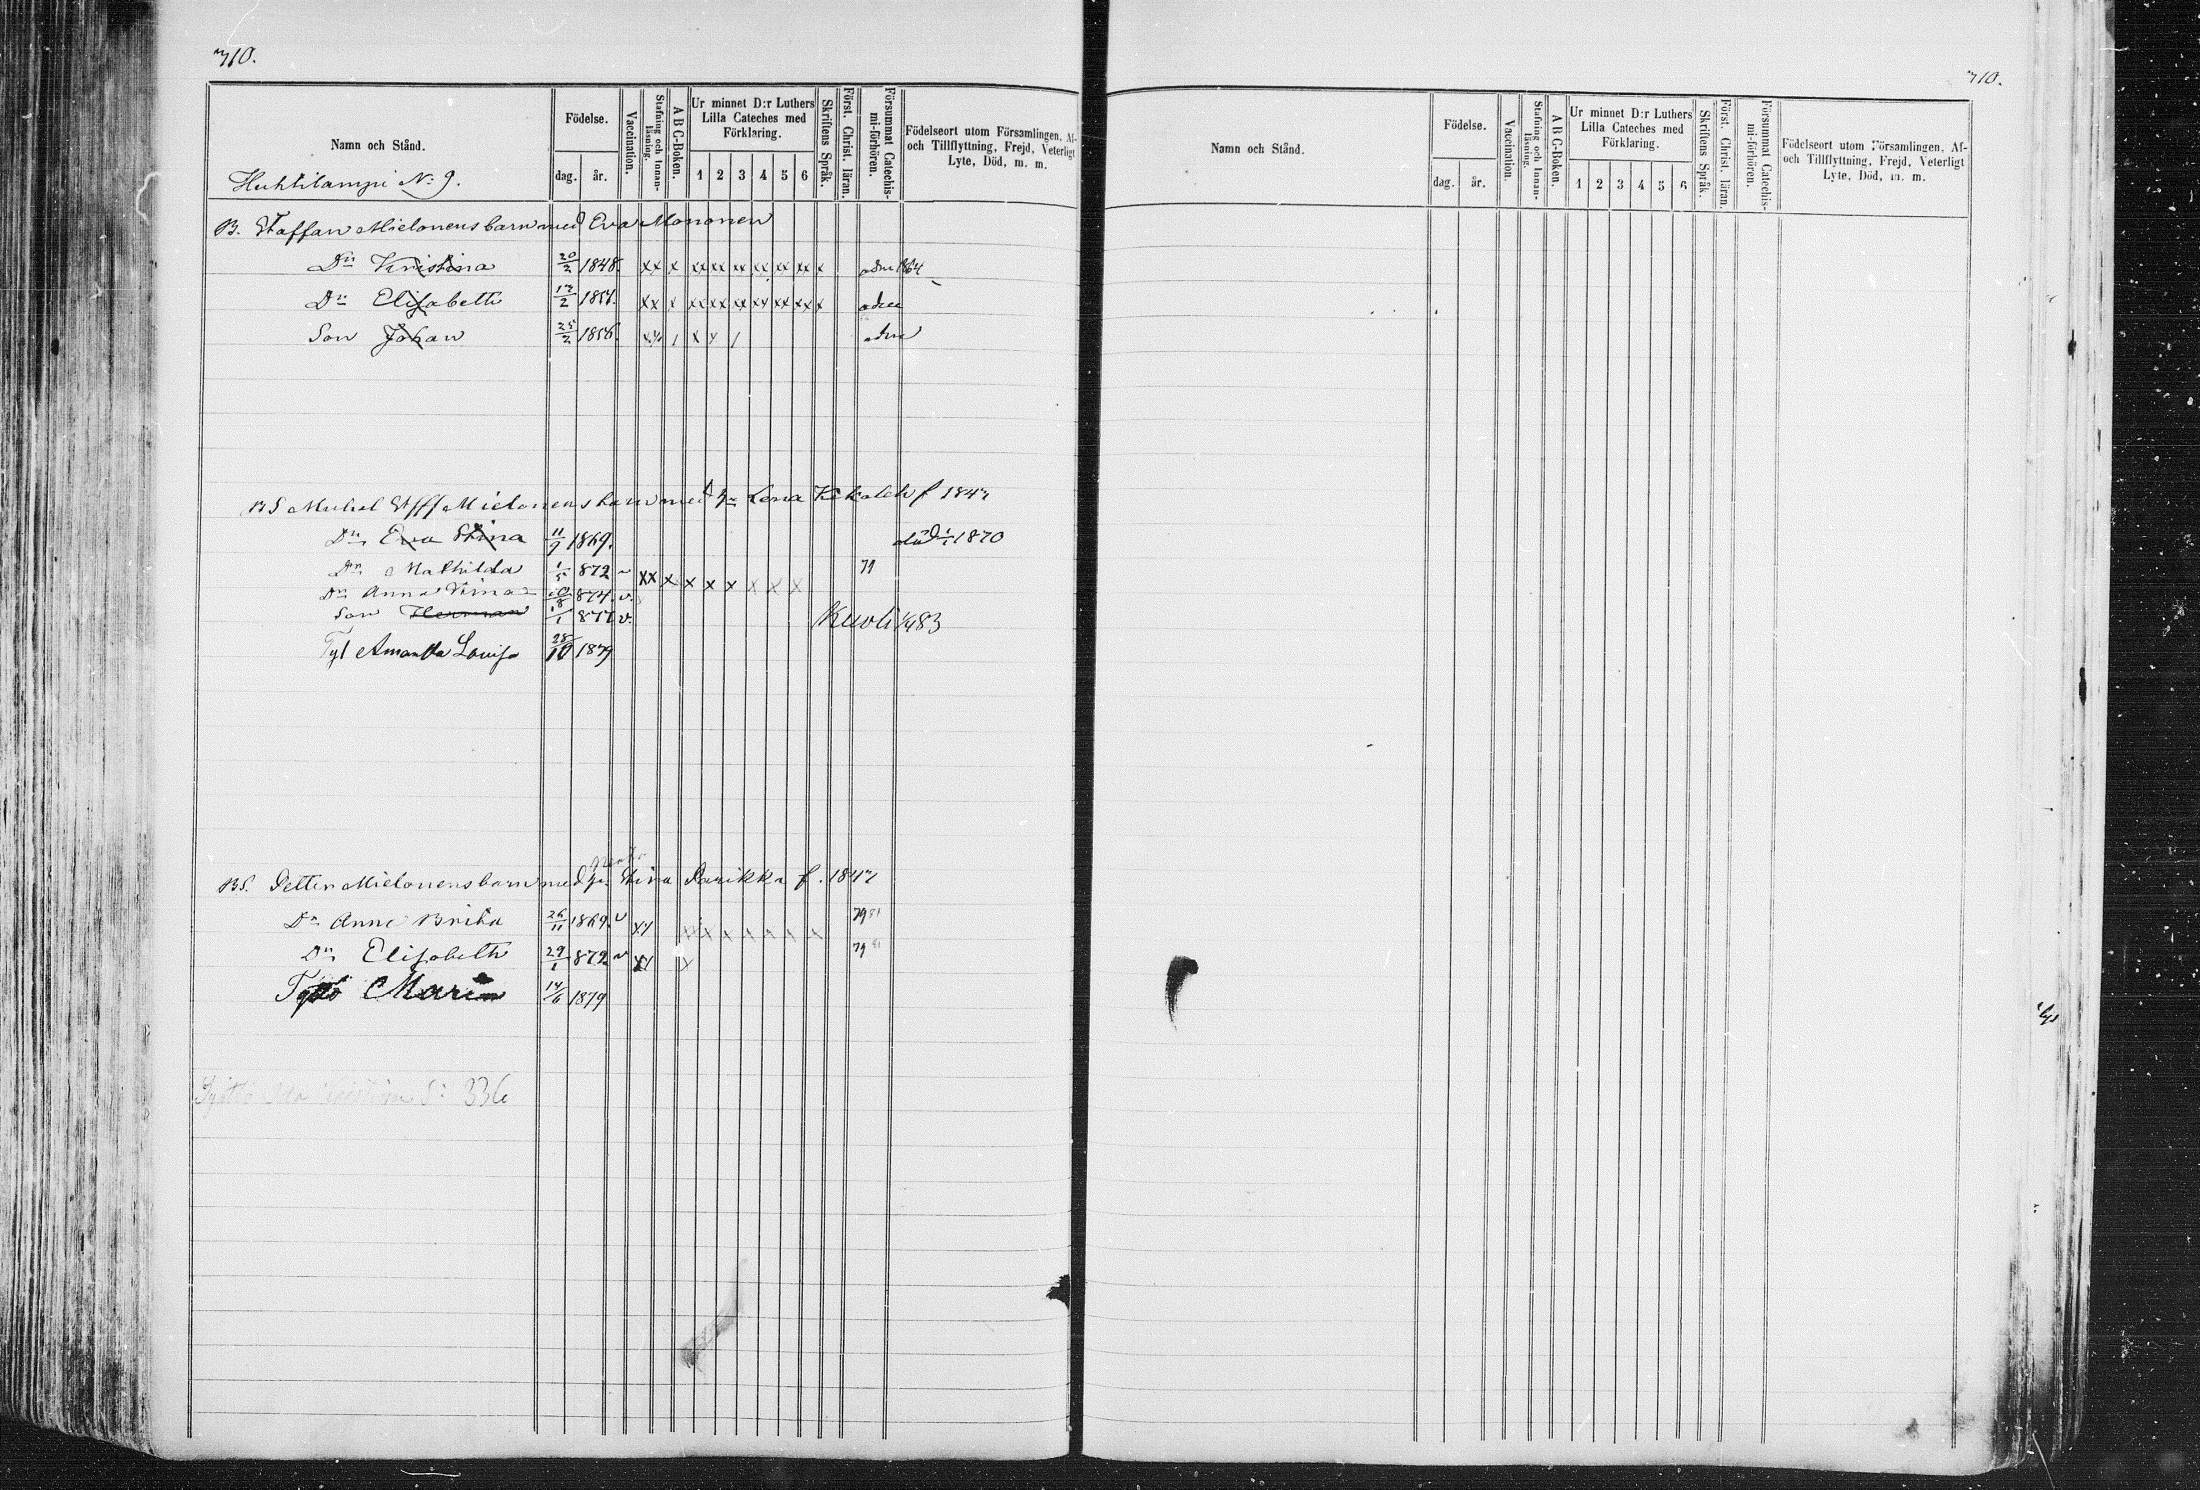 710.
Namn och Stånd.
Födelse.
dag. år.
Vaccination.
Stafning och Innan-läsning.
A B C-Boken.
Ur minnet D:r Luthers Lilla Cateches med Förklaring.
1 2 3 4 5 6
Skriftens Språk.
Först. Christ. läran.
Försummat Catechis-mi-förhören.
Födelseort utom Församlingen, Af- och Tillflyttning, Frejd, Veterligt Lyte, Död, m. m.
Huhtilampi N:9.
B. Staffan Mielonens barn med Eva Mononen
Dr Kristina 20/2 1848. xx x xx xx xx xx xx xx x adm 1864
Dr Elisabeth 17/2 1851. xx x xx xx xx xx xx xx x adm
Son Johan 25/2 1856. xx / x / adm
BS Michel Mielonens barn med h. Lena f 1847
Dr Eva Stina 11/9 1869. död 1870
Dr Mathilda 1/5 872 xx x x x x x x x 79
Dr Anna Stina 874. v.
Son Herman 1877 v. Kuoli 83
Tyt Amanda Lovisa 28/10 1879
BS. Petter Mielonens barn med h. Stina Parikka f. 1847
Dr Anna Brita 26/11 1869. v xx 79 81
Dr Elisabeth 29/1 872 v xx x 79 81
Tytö Maria 14/6 1879
S: 336
710.
Namn och Stånd.
Födelse.
dag. år.
Vaccination.
Stafning och Innan-läsning.
A B C-Boken.
Ur minnet D:r Luthers Lilla Cateches med Förklaring.
1 2 3 4 5 6
Skriftens Språk.
Först. Christ. läran.
Försummat Catechis-mi-förhören.
Födelseort utom Församlingen, Af- och Tillflyttning, Frejd, Veterligt Lyte, Död, m. m.